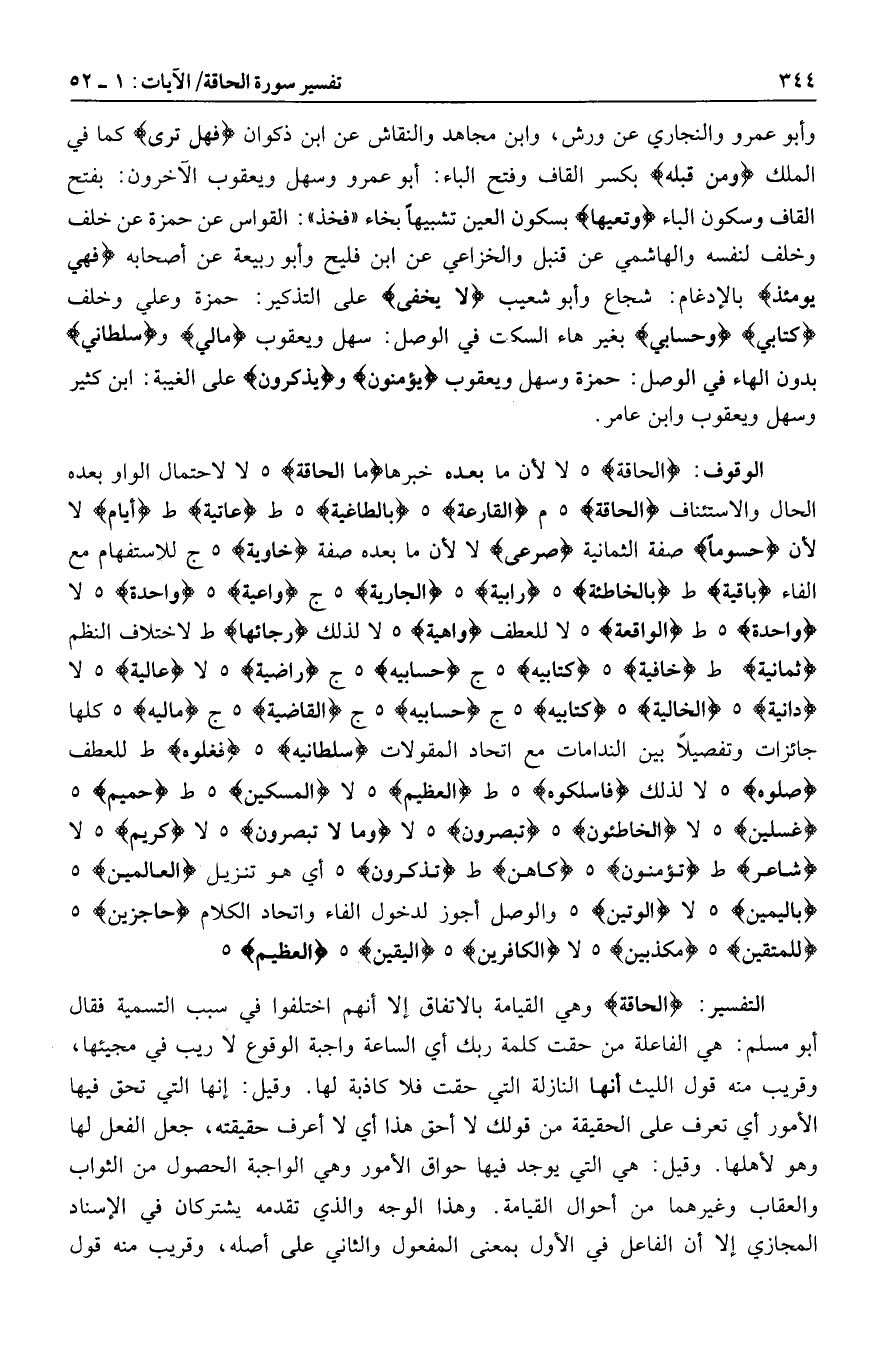 ٣٤٤ تفسير سورة الحاقة/ الآيات: ١ - ٥٢
وأبو عمرو والنجاري عن ورش، وابن مجاهد والنقاش عن ابن ذكوان ﴿فهل ترى﴾ كما في
الملك ﴿ومن قبله﴾ بكسر القاف وفتح الباء: أبو عمرو وسهل ويعقوب الآخرون: بفتح
القاف وسكون الباء ﴿وتعيها﴾ بسكون العين تشبيهاً بخاء «فخذ»: القواس عن حمزة عن خلف
وخلف لنفسه والهاشمي عن قنبل والخزاعي عن ابن فليح وأبو ربيعة عن أصحابه ﴿فهي
يومئذ﴾ بالإدغام: شجاع وأبو شعيب ﴿لا يخفى﴾ على التذكير: حمزة وعلي وخلف
﴿كتابي﴾ ﴿وحسابي﴾ بغير هاء السكت في الوصل: سهل ويعقوب ﴿مالي﴾ و﴿سلطاني﴾
بدون الهاء في الوصل: حمزة وسهل ويعقوب ﴿يؤمنون﴾ و﴿يذكرون﴾ على الغيبة: ابن كثير
وسهل ويعقوب وابن عامر.
الوقوف: ﴿الحاقة﴾ ٥ لا لأن ما بعده خبرها﴿ما الحاقة﴾ ٥ لا لاحتمال الواو بعده
الحال والاستئناف ﴿الحاقة﴾ ٥ م ﴿القارعة﴾ ٥ ﴿بالطاغية﴾ ٥ ط ﴿عاتية﴾ ط ﴿أيام﴾ لا
لأن ﴿حسوماً﴾ صفة الثمانية ﴿صرعى﴾ لا لأن ما بعده صفة ﴿خاوية﴾ ٥ ج للاستفهام مع
الفاء ﴿باقية﴾ ط ﴿بالخاطئة﴾ ٥ ﴿رابية﴾ ٥ ﴿الجارية﴾ ٥ ج ﴿واعية﴾ ٥ ﴿واحدة﴾ ٥ لا
﴿واحدة﴾ ٥ ط ﴿الواقعة﴾ ٥ لا للعطف ﴿واهية﴾ ٥ لا لذلك ﴿رجائها﴾ ط لاختلاف النظم
﴿ثمانية﴾ ط ﴿خافية﴾ ٥ ﴿كتابيه﴾ ٥ ج ﴿حسابيه﴾ ٥ ج ﴿راضية﴾ ٥ لا ﴿عالية﴾ ٥ لا
﴿دانية﴾ ٥ ﴿الخالية﴾ ٥ ﴿كتابيه﴾ ٥ ج ﴿حسابيه﴾ ٥ ج ﴿القاضية﴾ ٥ ج ﴿ماليه﴾ ٥ كلها
جائزات وتفصيلاً بين الندامات مع اتحاد المقولات ﴿سلطانيه﴾ ٥ ﴿فغلوه﴾ ط للعطف
﴿صلوه﴾ ٥ لا لذلك ﴿فاسلكوه﴾ ٥ ط ﴿العظيم﴾ ٥ لا ﴿المسكين﴾ ٥ ط ﴿حميم﴾ ٥
﴿غسلين﴾ ٥ لا ﴿الخاطئون﴾ ٥ ﴿تبصرون﴾ ٥ لا ﴿وما لا تبصرون﴾ ٥ لا ﴿كريم﴾ ٥ لا
﴿شاعر﴾ ط ﴿تؤمنون﴾ ٥ ﴿كاهن﴾ ط ﴿تذكرون﴾ ٥ أي هو تنزيل ﴿العالمين﴾ ٥
﴿باليمين﴾ ٥ لا ﴿الوتين﴾ ٥ والوصل أجوز لدخول الفاء واتحاد الكلام ﴿حاجزين﴾ ٥
﴿للمتقين﴾ ٥ ﴿مكذبين﴾ ٥ لا ﴿الكافرين﴾ ٥ ﴿اليقين﴾ ٥ ﴿العظيم﴾ ٥
التفسير: ﴿الحاقة﴾ وهي القيامة بالاتفاق إلا أنهم اختلفوا في سبب التسمية فقال
أبو مسلم: هي الفاعلة من حقت كلمة ربك أي الساعة واجبة الوقوع لا ريب في مجيئها،
وقريب منه قول الليث أنها النازلة التي حقت فلا كاذبة لها. وقيل: إنها التي تحق فيها
الأمور أي تعرف على الحقيقة من قولك لا أحق هذا أي لا أعرف حقيقته، جعل الفعل لها
وهو لأهلها. وقيل: هي التي يوجد فيها حواق الأمور وهي الواجبة الحصول من الثواب
والعقاب وغيرهما من أحوال القيامة. وهذا الوجه والذي تقدمه يشتركان في الإسناد
المجازي إلا أن الفاعل في الأول بمعنى المفعول والثاني على أصله، وقريب منه قول